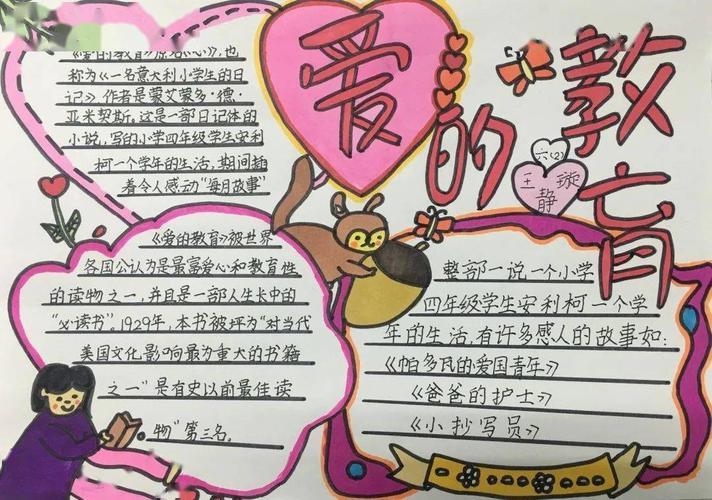 《爱的教育》原名《心》,也
称为《一名意大利小学生的日
记》,作者是蒙艾蒙多·德·
亚米契斯,这是一部日记体的
小说,写的小学四年级学生安利
柯一个学年的生活,期间插
着令人感动“每月故事”
爱的教育
六(2)
王静璇
《爱的教育》被世界
各国公认为是最富爱心和教育性
的读物之一,并且是一部人生长中的
“必读书”,1929年,本书被坪为“对当代
美国文化影响最为重大的书籍
之一”是有史以前最佳读
物“第三名。
整部一说一个小学
四年级学生安利柯一个学
年的生活,有许多感人的故事如:
《帕多瓦的爱国青年》
《爸爸的护士》
《小抄写员》